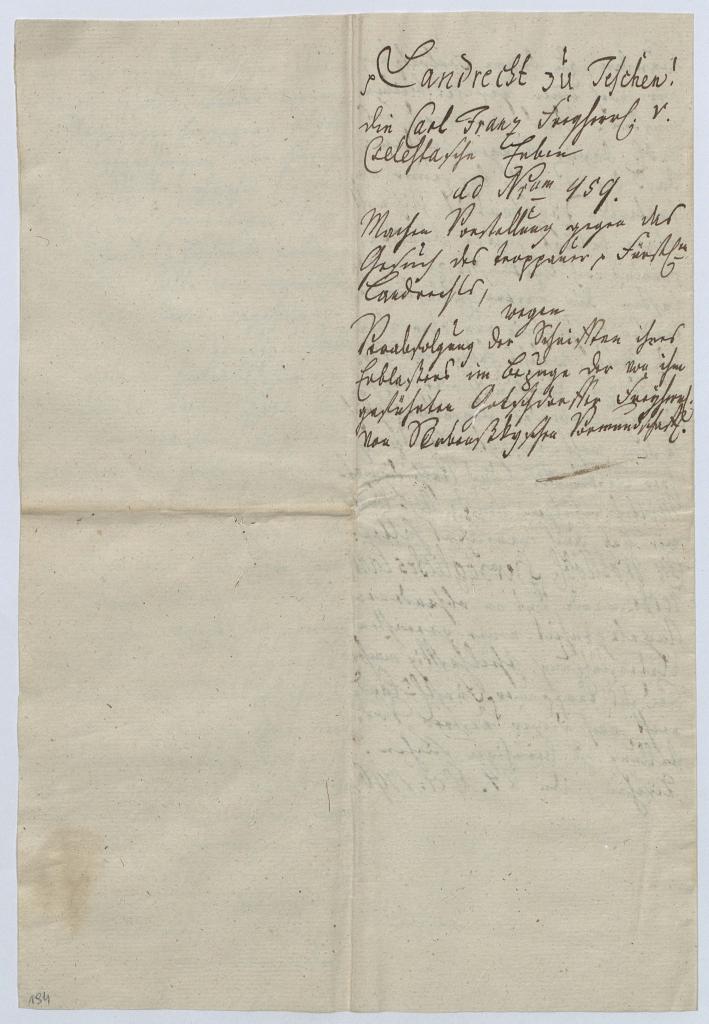 Landrecht zu Teschen!
die Carl Franz Freyherrl: v.
Czelestasche Erben
ad Nrum 459.
Machen Vorstellung gegen das
Gesuch des troppauer Fürstl:
Landrechts,
wegen
Verabfolgung der Schriften ihres
Erblassers im Bezuge der von ihm
geführten Freyherrl:
von Skrbenskyschen Vormundschaft.
194